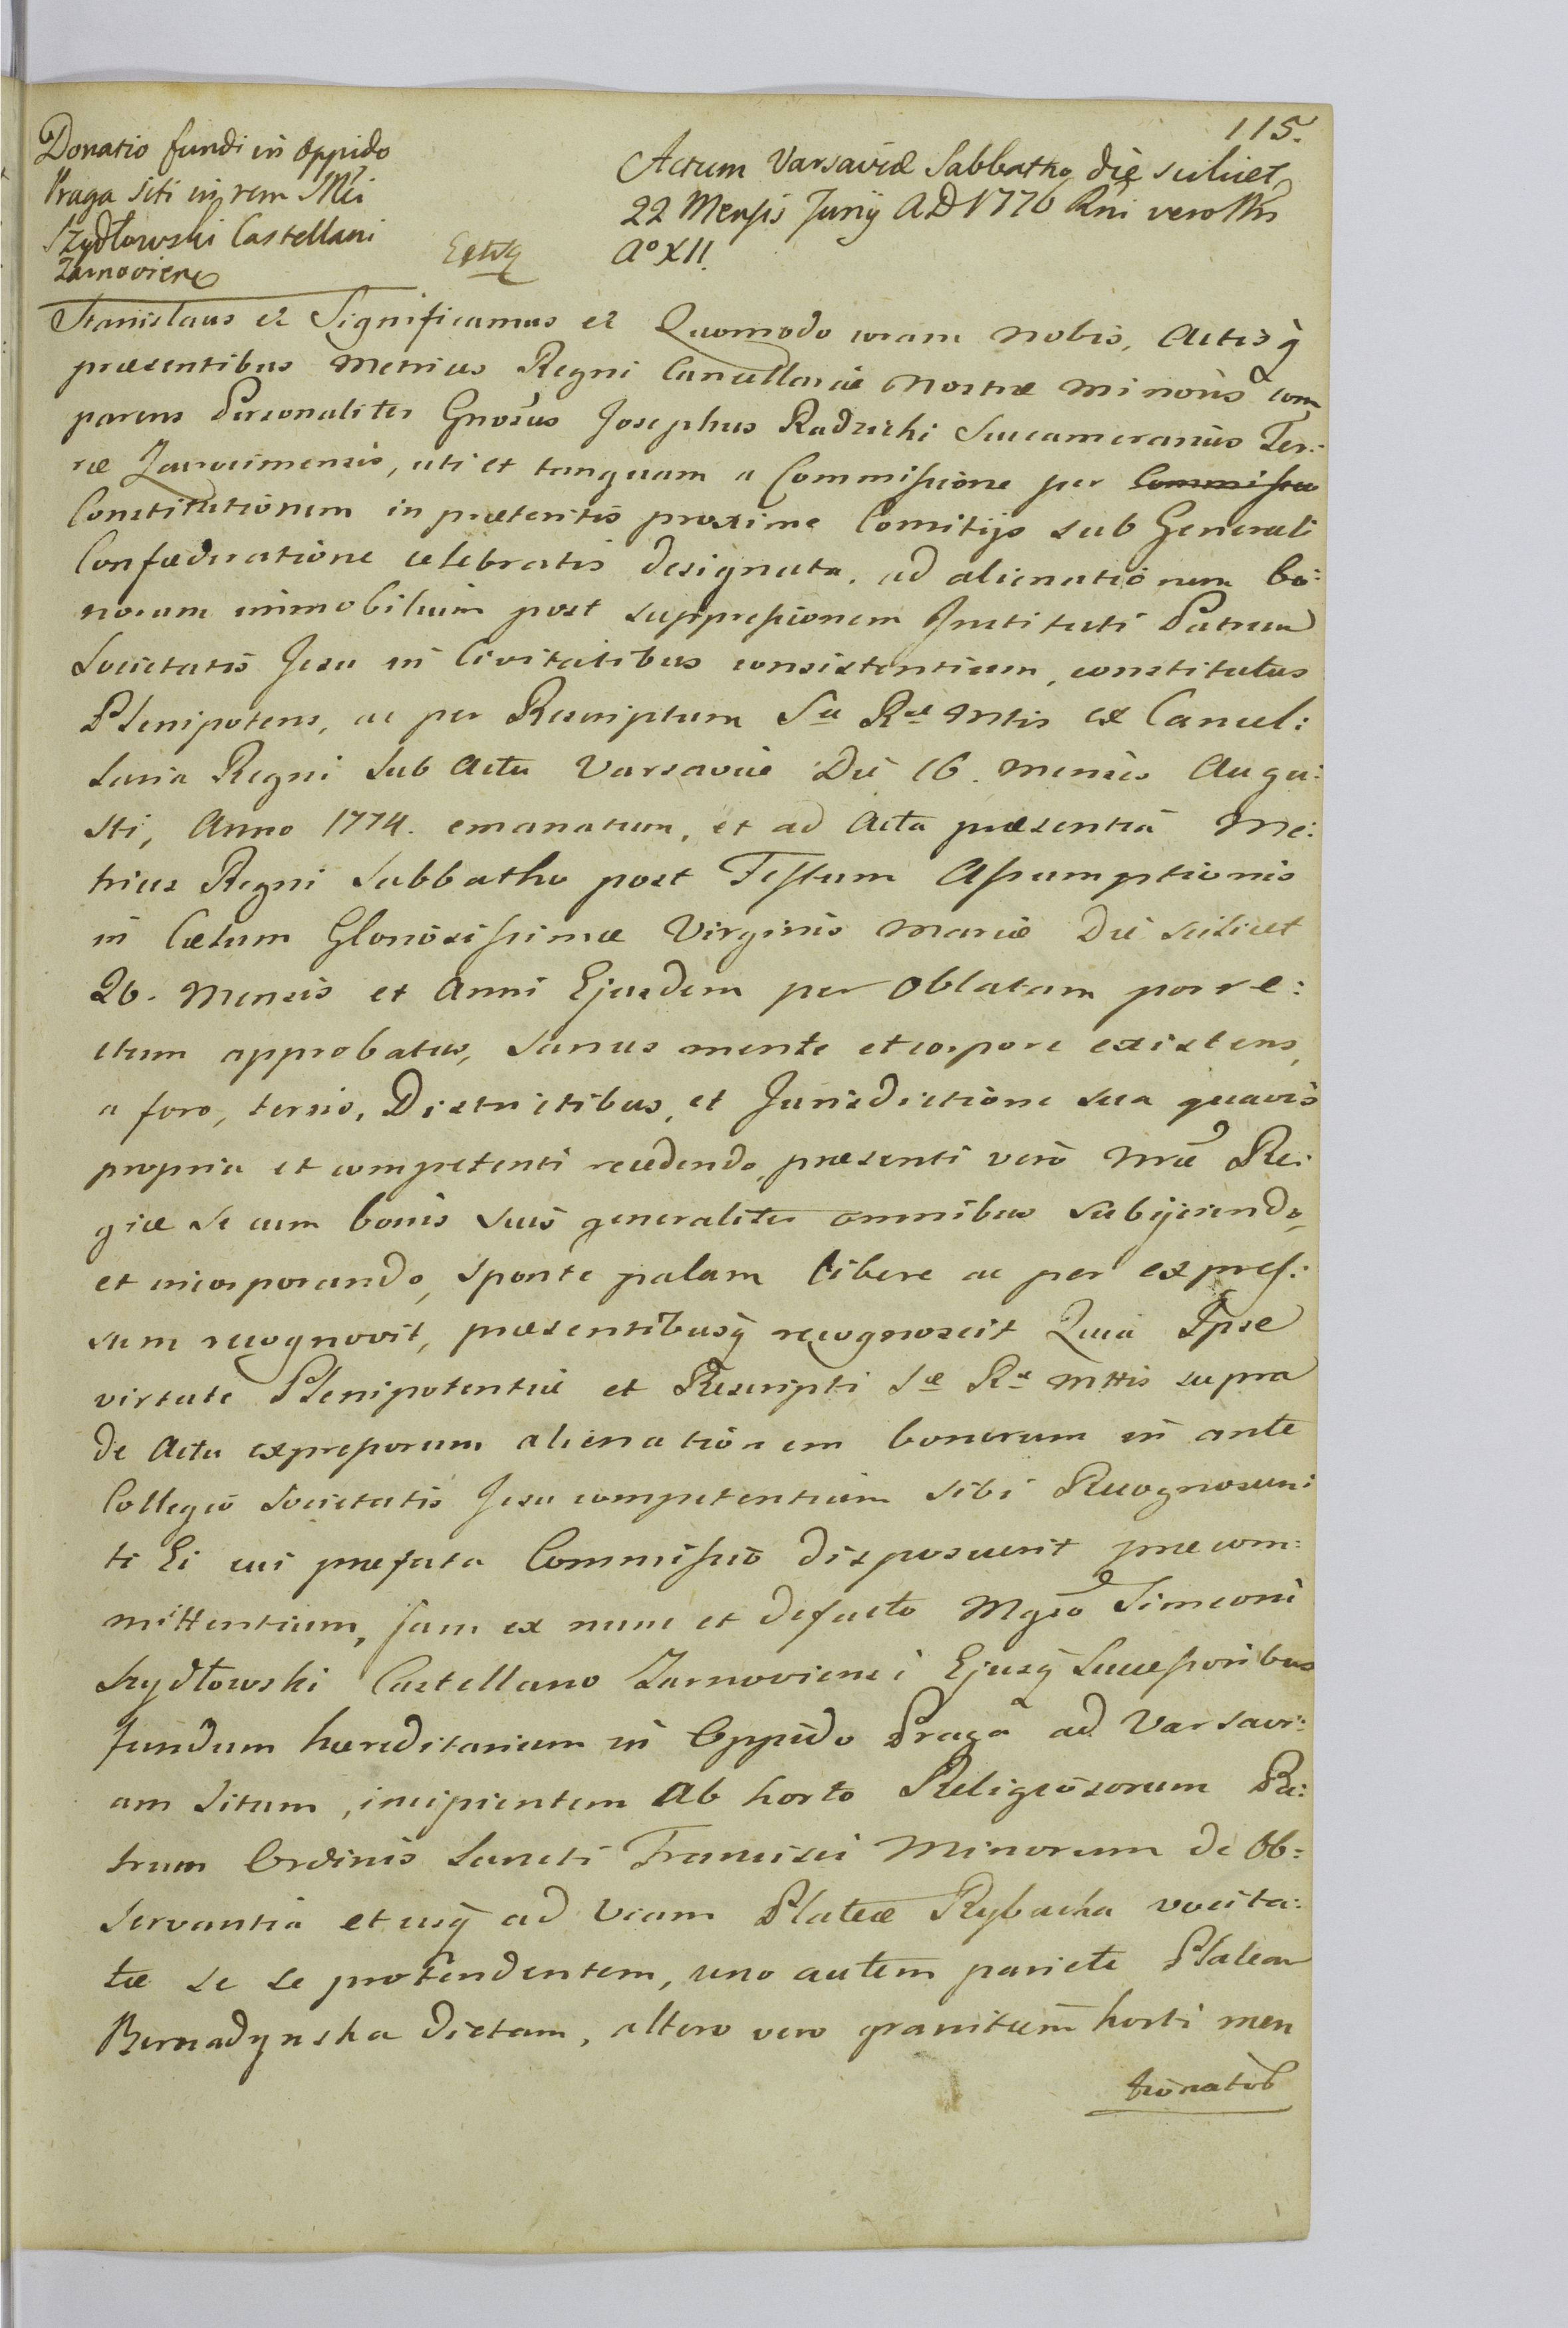 115.
Donatio fundi in Oppido
Praga siti in rem Mci
Szydłowski Castellani
Zarnovien
Actum Varsaviæ Sabbatho die scilicet
22 Mensis Junij AD 1776 Rni vero Nri
A° XII.
Stanislaus et Significamus et Quomodo coram nobis, Actisq
præsentibus Metrices Regni Cancellariæ Nostræ Minoris com
parens Personaliter Gnosus Josephus Radzicki Succamerarius Ter:
ræ Zakrocimensis, uti et tanquam a Commissione per Commissio
Constitutionem in præteritis proxime Comitijs sub Generali
Confœderatione celebratis designata, ad alienationem bo:
norum immobilium post suppressionem Instituti Patrum
Societatis Jesu in Civitatibus consistentium, constitutus
Plenipotens, ac per Rescriptum Sæ Ræ Mttis ex Cancel:
laria Regni sub Actu Varsaviæ Die 16. Mensis Augu:
sti, Anno 1774. emanatum, et ad Acta præsentia Me:
trices Regni Sabbatho post Festum Assumptionis
in Cælum Gloriosissimæ Virginis Mariæ Die scilicet
26. Mensis et Anni Ejusdem per Oblatam porre:
ctum approbatus, sanus mente et corpore existens,
a foro, terris, Districtibus, et Jurisdictione sua quavis
propria et competenti recedendo, præsenti vero Nræ Re:
giæ se cum bonis suis generaliter omnibus subijciendo,
et incorporando, sponte palam libere ac per expres:
sum recognovit, præsentibusq recognoscit Quia Ipse
virtute Plenipotentiæ et Rescripti Sæ Ræ Mttis supra
de Actu expressorum alienationem bonorum in ante
Collegio Societatis Jesu competentium sibi Recognoscen:
ti Ei cui præfata Commissio disposuerit præcom:
mittentium, jam ex nunc et defacto Mgco Simeoni
Szydłowski Castellano Zarnoviensi Ejusq Successoribus
fundum hæreditarium in Oppido Praga ad Varsavi:
am situm, incipientem Ab horto Religiosorum Pa:
trum Ordinis Sancti Francisci Minorum de Ob:
servantia et usq ad Viam Plateæ Rybacka vocita:
tæ se se protendentem, uno autem pariete Plateam
Bernadynska dictam, altero vero granitiem horti men
tionatorum